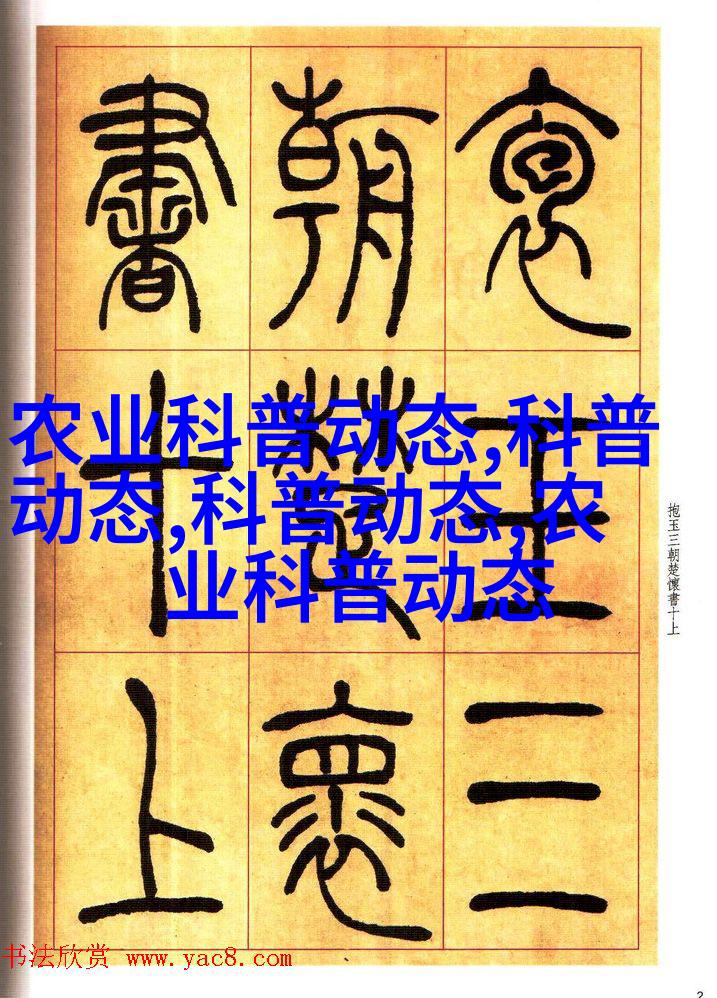 袌玉三
朝楚褱
書十上
农业科普动态,科普
动态,科普动态,农
业科普动态
抱玉三朝楚懷書十上
书法欣赏 www.yac8.com
2